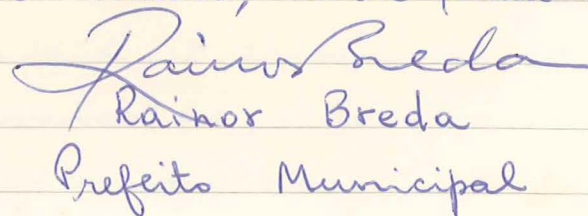 Rainor Breda
Rainor Breda
Prefeito Municipal